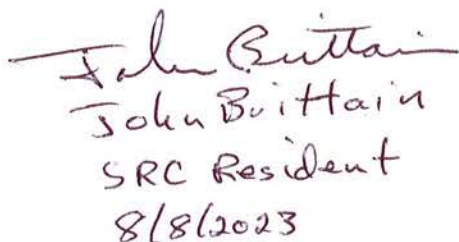 John Brittain
John Brittain
SRC Resident
8/8/2023